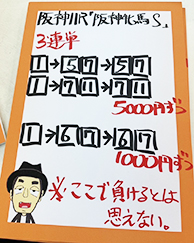 阪神11R「阪神牝馬S」
3連単
1→5 7→5 7
1→7 11→7 11
5000円ずつ
1→6 7→6 7
1000円ずつ
※ここで負けるとは
思えない。